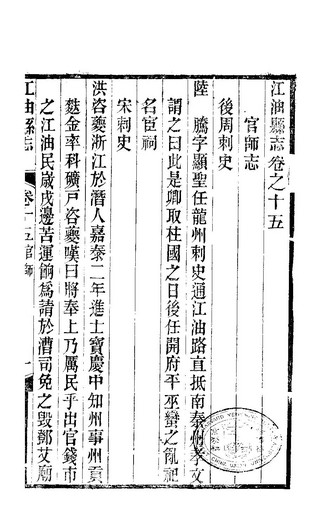 江油縣志卷之十五
官師志
後周刺史
陸騰字顯聖任龍州刺史通江油路直抵南秦州孝文
謂之曰此是卿取柱國之日後任開府平巫蠻之亂祀
名宦祠
宋刺史
洪咨夔浙江於潛人嘉泰二年進士寶慶中知州事州貢
麩金率科礦戶咨夔嘆曰將奉上乃厲民乎出官錢市
之江油民歲戍邊苦運餉為請於漕司免之毀鄧艾廟
江油縣志 卷十五官師 一